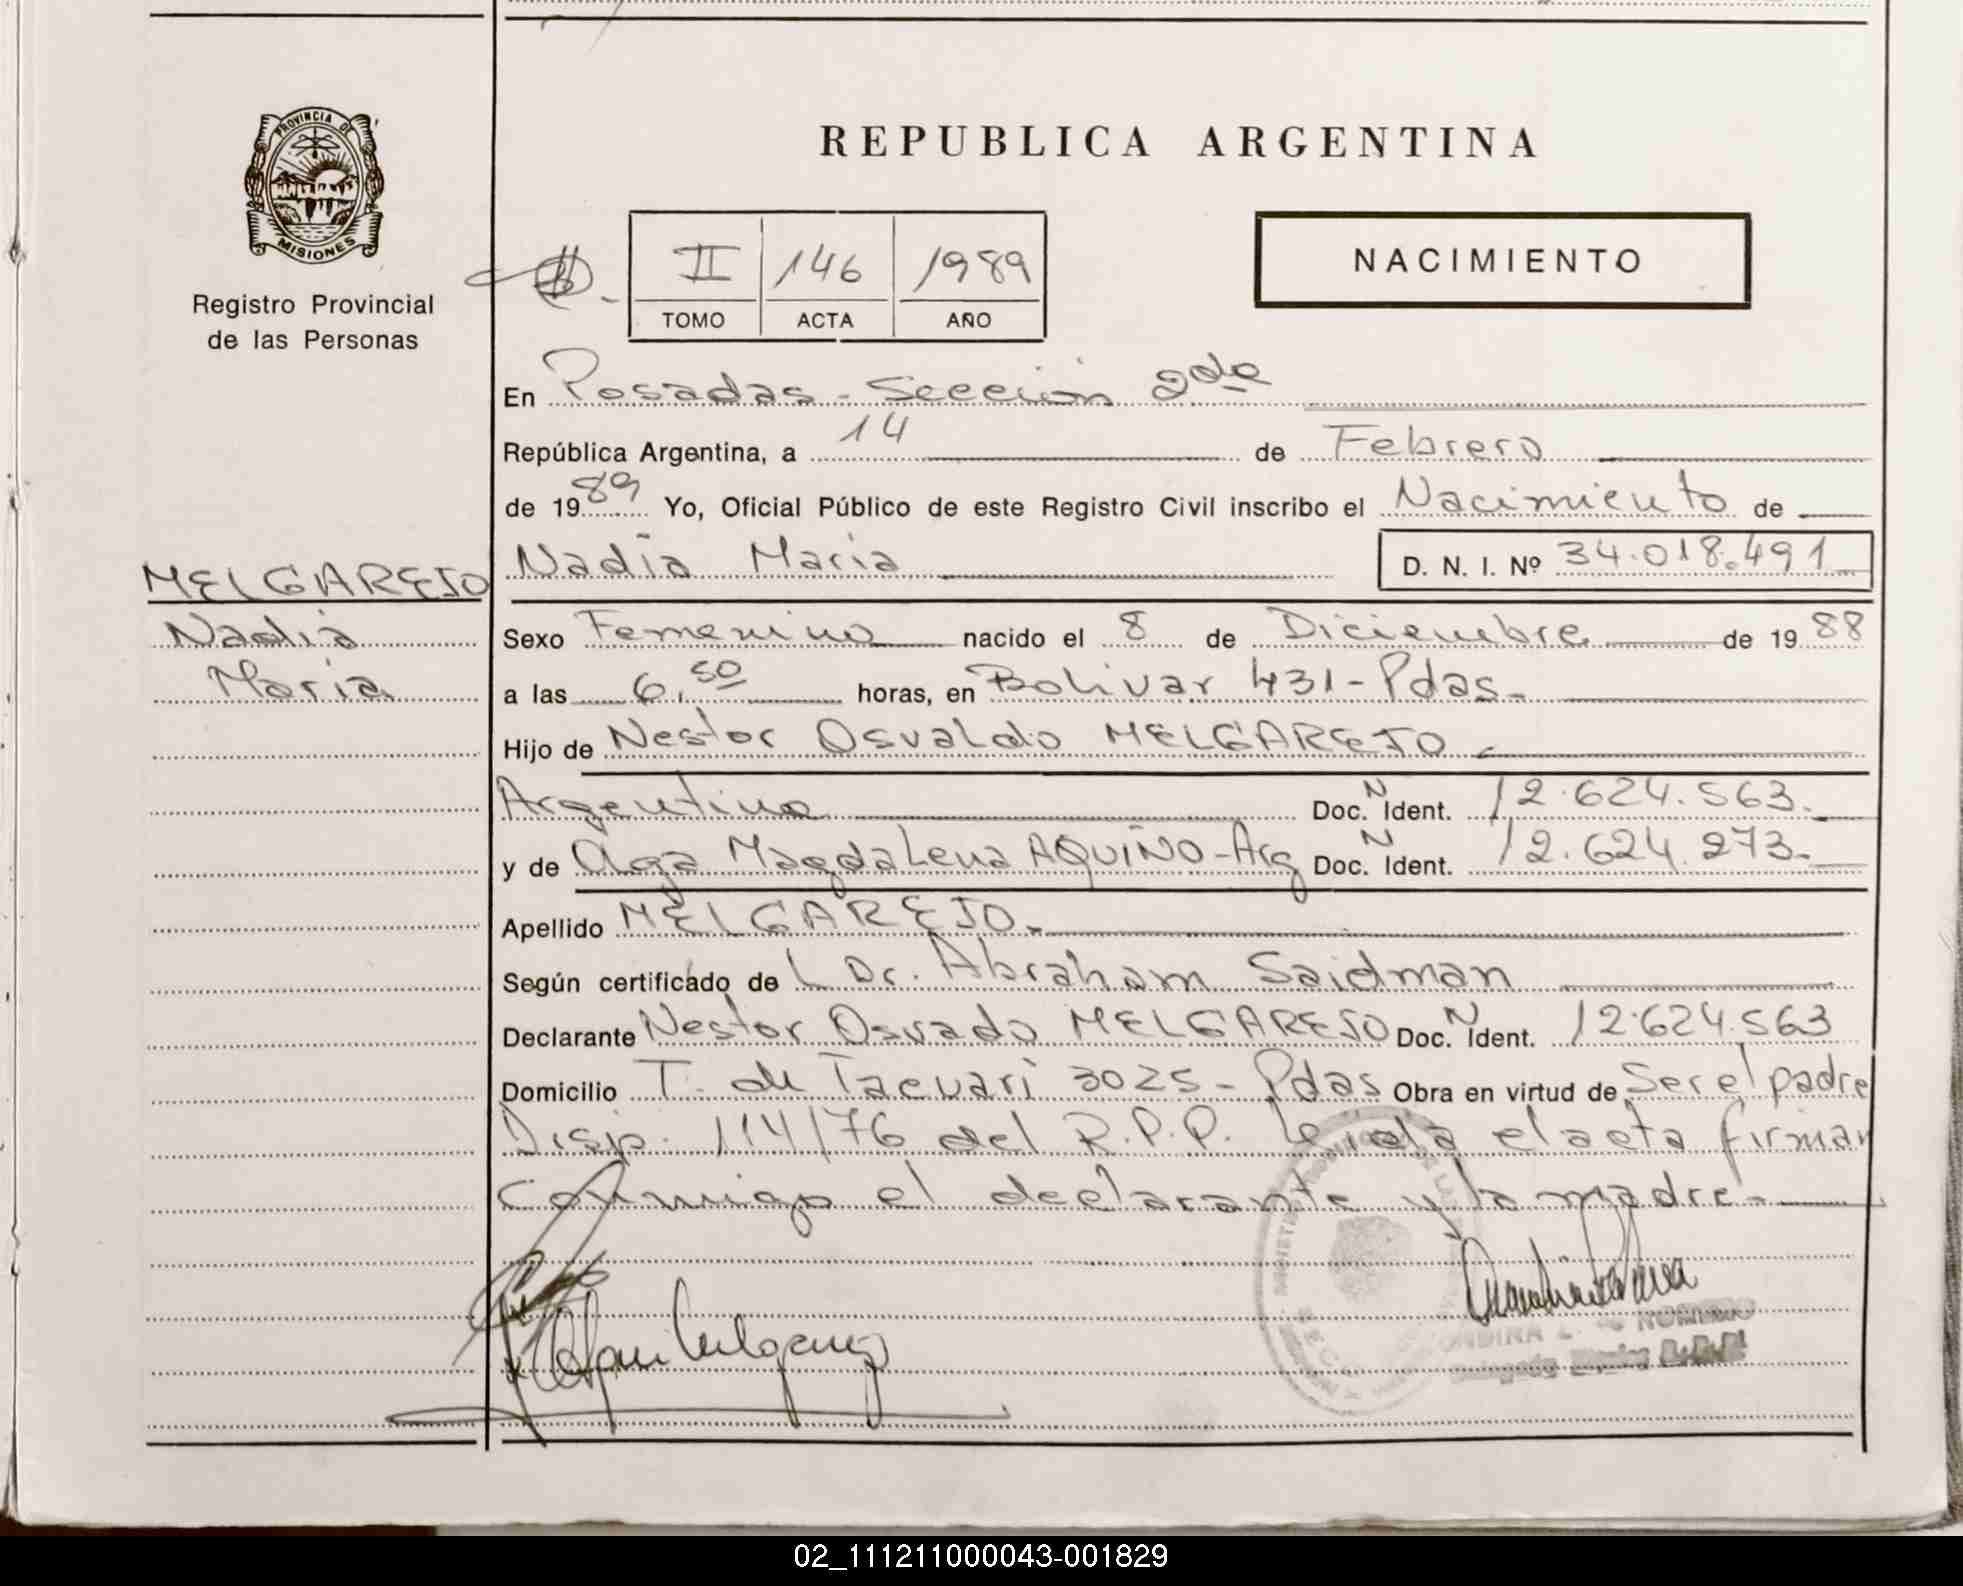 REPUBLICA ARGENTINA
PROVINCIA DE
MISIONES
Registro Provincial
de las Personas
II 146 1989
TOMO ACTA AÑO
NACIMIENTO
En Posadas - Sección 2da
República Argentina, a 14 de Febrero
de 1989 Yo, Oficial Público de este Registro Civil inscribo el Nacimiento de
MELGAREJO
Nadia
Maria
Nadia Maria D. N. I. Nº 34.018.491
Sexo Femenino nacido el 8 de Diciembre de 1988
a las 6,50 horas, en Bolivar 431 - Pdas.
Hijo de Nestor Osvaldo MELGAREJO
Argentino Doc. N Ident. 12.624.563.
y de Olga Magdalena AQUINO - Arg Doc. N Ident. 12.624.273.
Apellido MELGAREJO.
Según certificado de L Dr. Abraham Saidman
Declarante Nestor Osvado MELGAREJO Doc. N Ident. 12.624.563
Domicilio T. de Tacuari 3025 - Pdas Obra en virtud de Ser el padre
Disp. 114/76 del R.P.P. Leida el acta firman
conmigo el declarante y la madre.
02_111211000043-001829